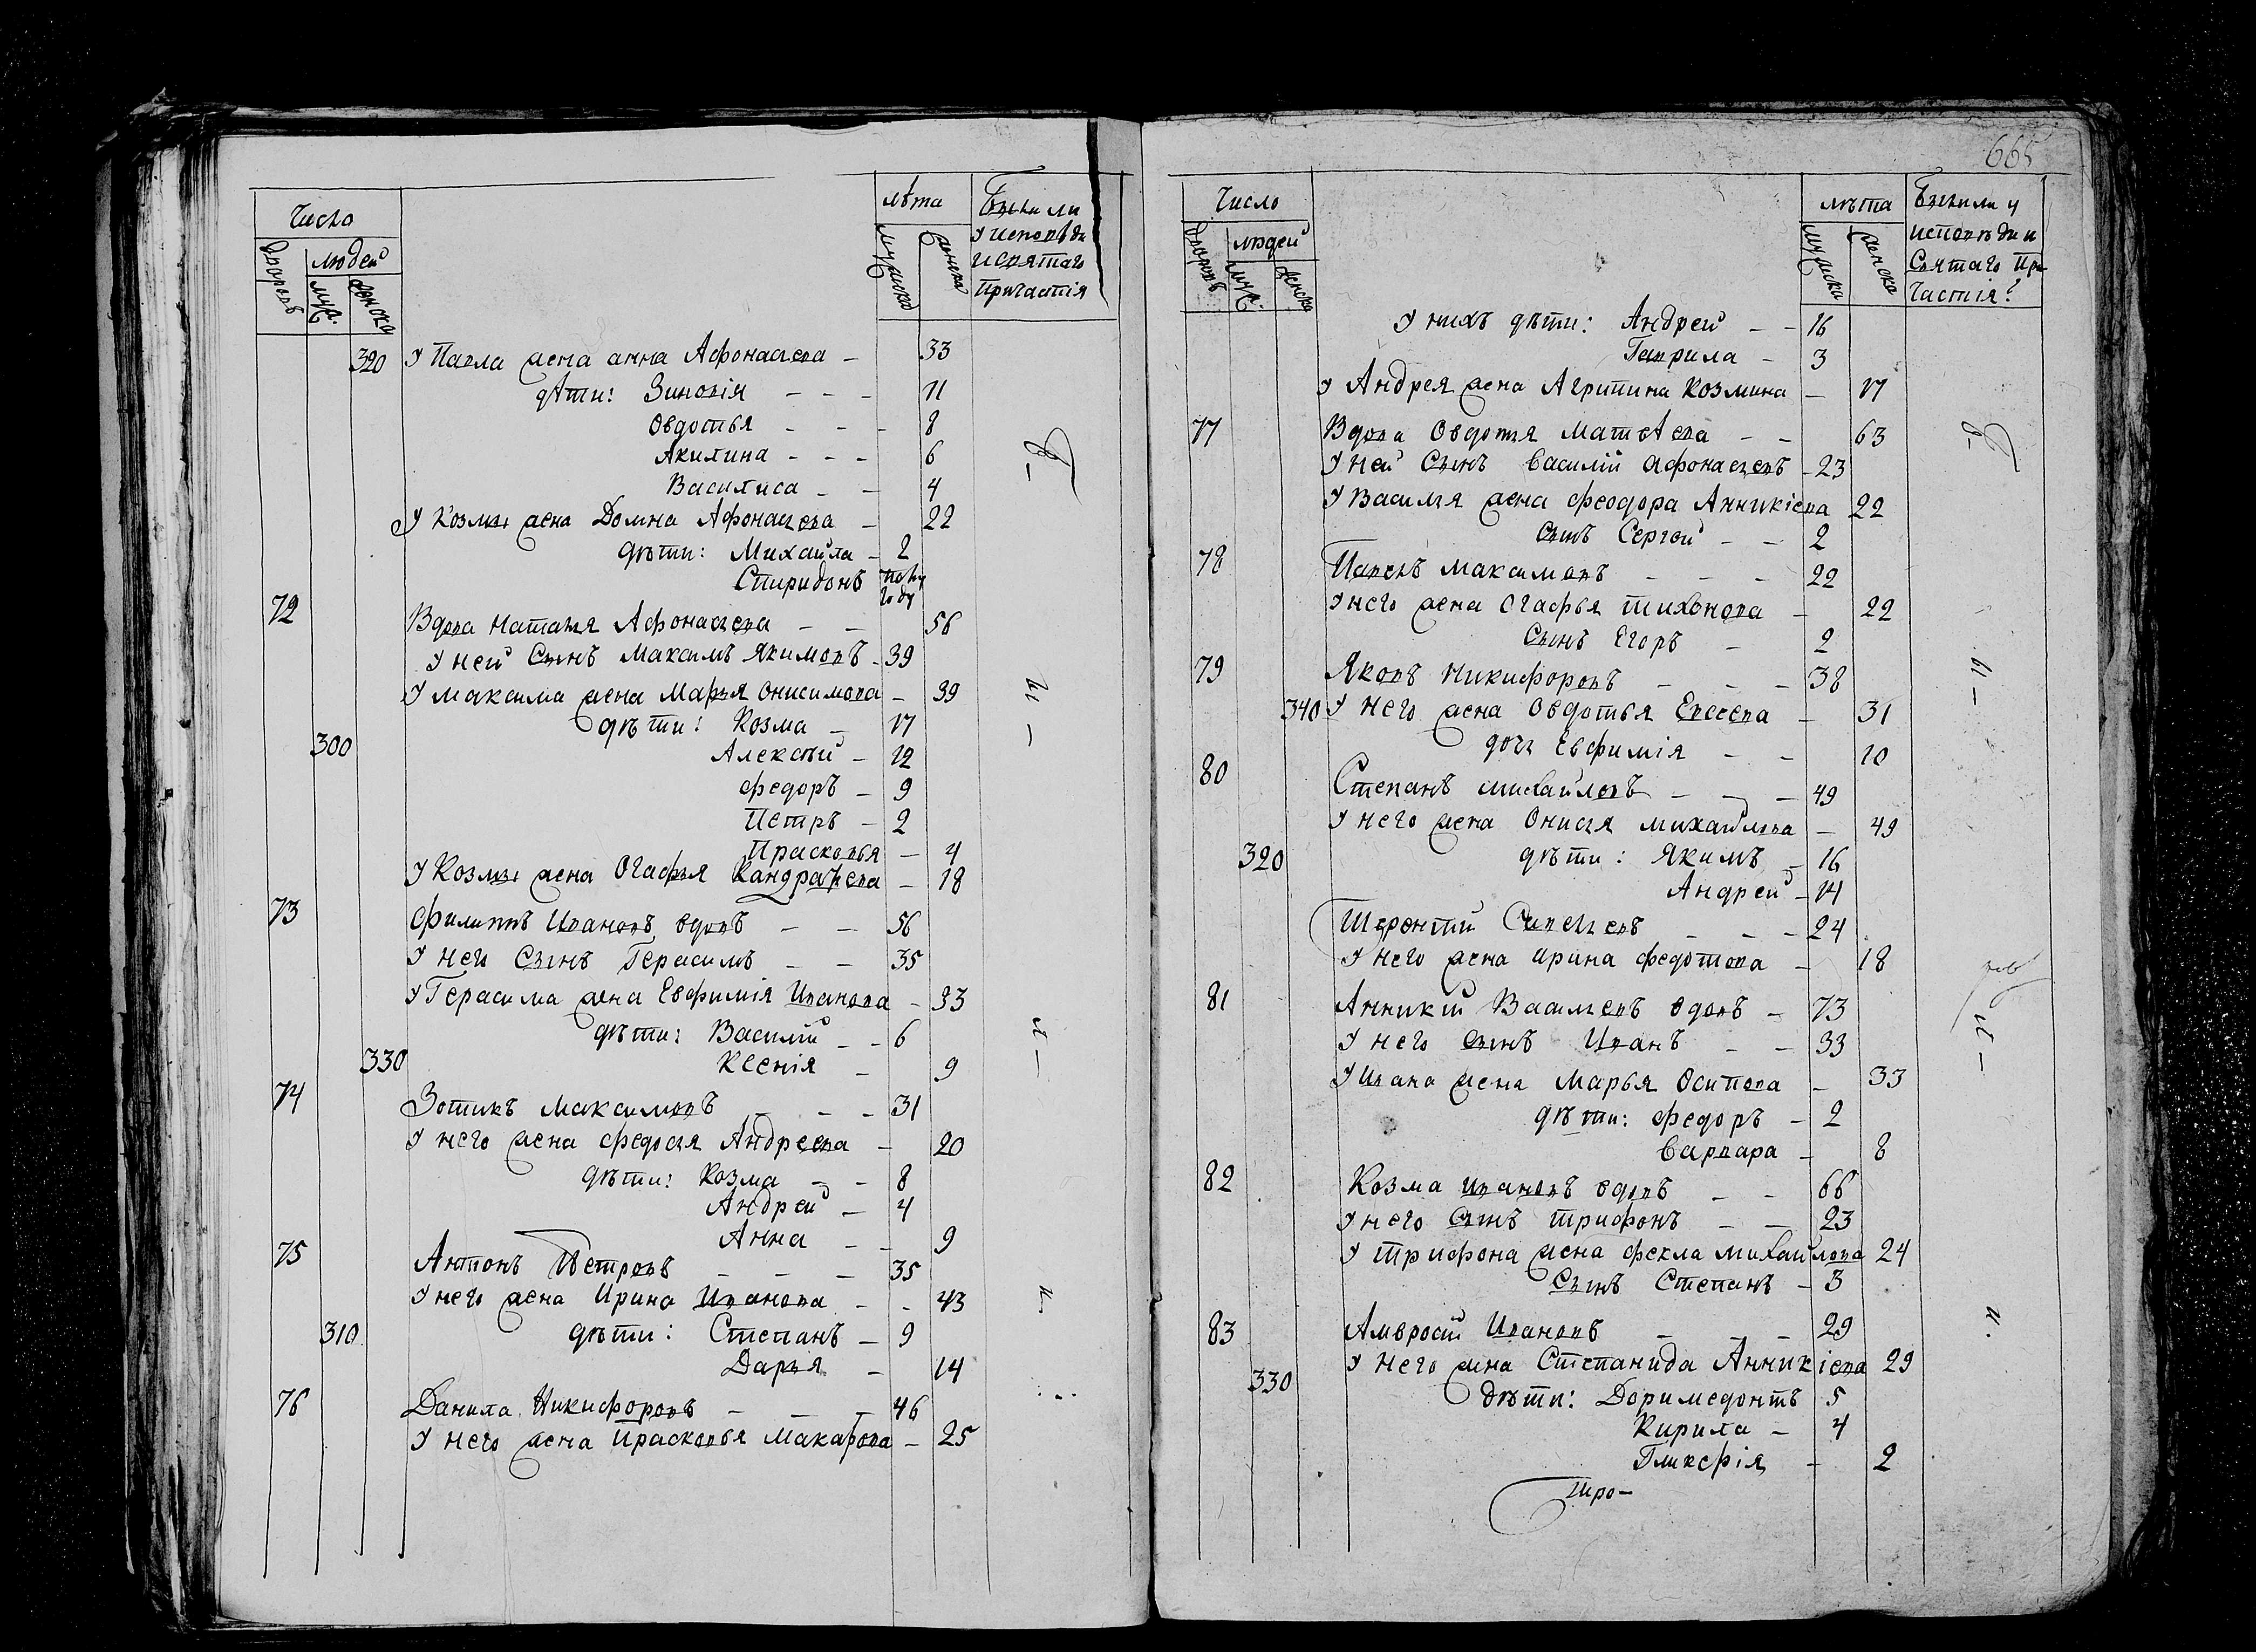 Число
дворовъ
людей
муж.
женска
лѣта
мужска
женска
Были ли
у исповѣди
и святаго
Причастія
320 У Павла жена анна Афонасьева – 33
дѣти: Зиновія – – – 11
Овдотья – – – 8
Акилина – – – 6
Василиса – – 4
У Козмы жена Домна Афонасьева – 22
дѣти: Михайла – 2
Спиридонъ полу
году
72 Вдова Наталья Афонасьева – – 56
У ней Сынъ Максимъ Якимовъ – 39
У максима жена Марья Онисимова – 39
дѣти: Козма – 17
300 Алексѣй – 12
Федоръ – 9
Петръ – 2
Прасковья – 4
У Козмы жена Огафья Кандратьева – 18
73 Филиппъ Ивановъ вдовъ – – 56
У него Сынъ Герасимъ – – 35
У Герасима жена Евфимія Иванова – 33
дѣти: Василій – – 6
330 Ксенія – 9
74 Зотикъ Максимовъ – – – 31
У него жена Федосья Андреева – 20
дѣти: Козма – – 8
Андрей – 4
Анна – – 9
75 Антонъ Петровъ – – – 35
У него жена Ирина Иванова – – 43
310 дѣти: Степанъ – 9
Дарья – 14
76 Данила Никифоровъ – – – 46
У него жена Прасковья Макарова – 25
665
Число
дворовъ
людей
муж.
женска
лѣта
мужска
женска
Были ли у
исповѣди и
Святаго При
Частія?
У нихъ дѣти: Андрей – – 16
Гаврила – 3
У Андрея жена Агрипина Козмина – 17
77 Вдова Овдотья Матвѣева – – 63
У ней Сынъ Василій Афонасьевъ – 23
У Василья жена Феодора Анникіева 22
Сынъ Сергей – – 2
78 Павелъ Максимовъ – – – 22
У него жена Огафья Тихонова – 22
Сынъ Егоръ – 2
79 Яковъ Никифоровъ – – – 38
340 У него жена Овдотья Евсеева – 31
дочь Евфимія – – 10
80 Степанъ Михайловъ – – – 49
У него жена Онисья Михайлова – 49
320 дѣти: Якимъ – 16
Андрей – 14
Терентий Савельевъ – – – 24
У него жена Ирина Федотова – 18
81 Анникій Васильевъ вдовъ – 73
У него Сынъ Иванъ – – 33
У Ивана жена Марья Осипова – 33
дѣти: Федоръ – 2
Варвара – 8
82 Козма Ивановъ вдовъ – – 66
У него Сынъ Трифонъ – – 23
У Трифона жена Фекла Михайлова 24
Сынъ Степанъ – 3
83 Амвросій Ивановъ – – – 29
330 У него жена Степанида Анникіева 29
дѣти: Доримедонтъ 5
Кирила – 4
Гликерія – 2